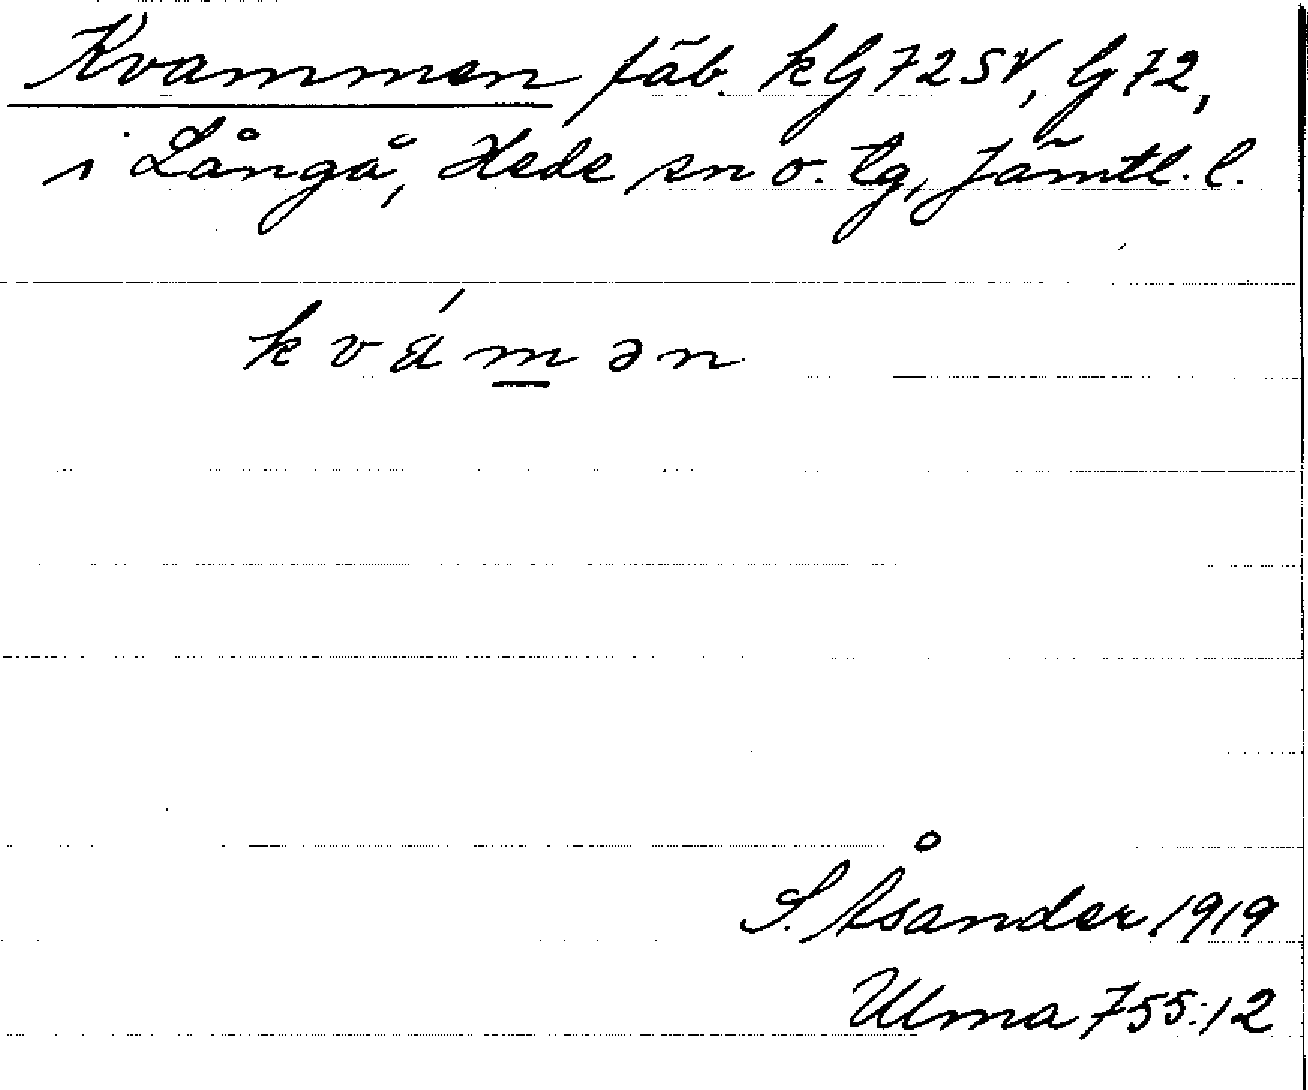 Kvammen fäb. kG72SV, G72,
i Långå, Hede sn o. tg, Jämtl. l.
k v á m̲ ə n
S. Åsander 1919
Ulma 755:12